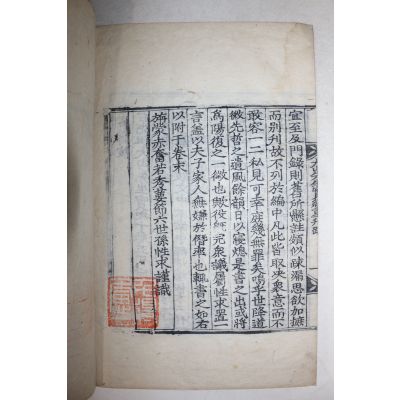 宜至及門錄則舊所懸註頗似疎漏思欲加摭
而別刊故不列於編中凡此皆取決衆意而不
敢容一二私見可幸庶幾無罪矣嗚乎世降道
微先哲之遺風餘韻日以寢熄是書之出或將
爲陽復之一徵也歟役旣完衆議屬性求置一
言蓋以夫子家人無嫌於僭率也輒書之如右
以附于卷末
旃蒙赤奮若秀葽節六世孫性求謹識